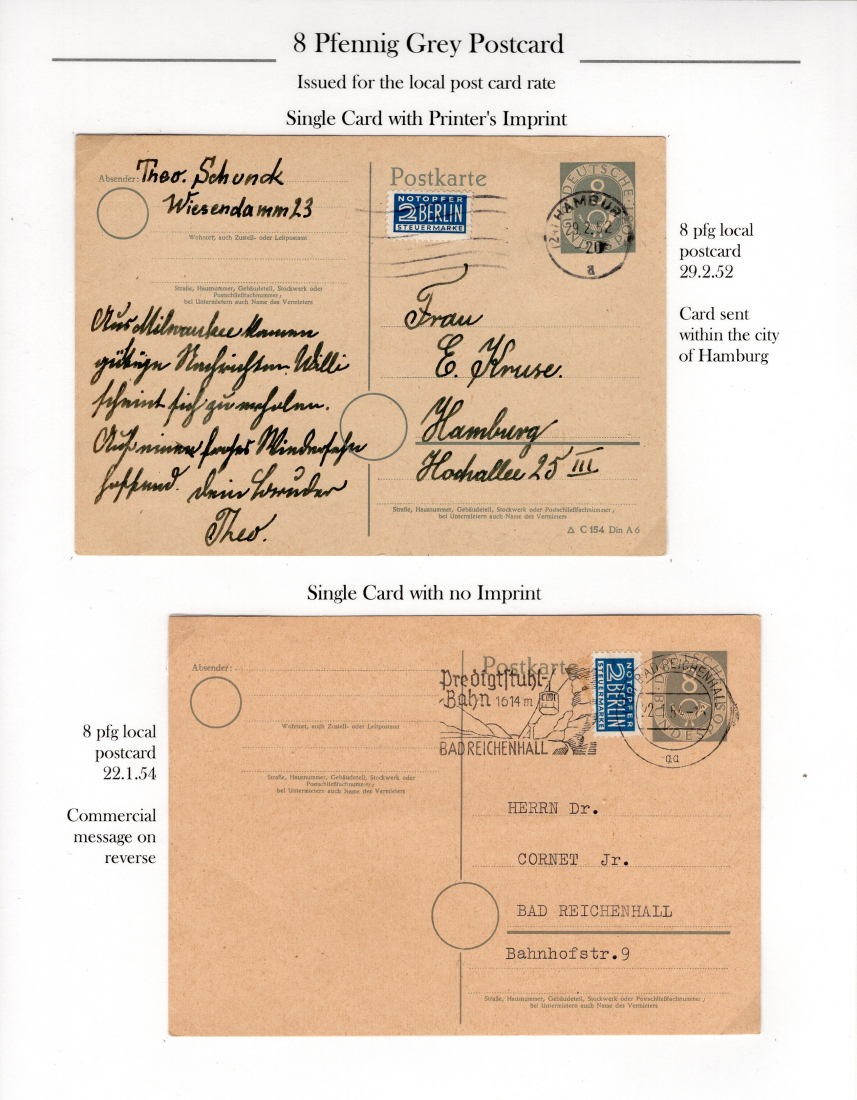 8 Pfennig Grey Postcard
Issued for the local post card rate
Single Card with Printer's Imprint
Absender: Theo. Schunck
Wiesendamm 23
Wohnort, auch Zustell- oder Leitpostamt
Straße, Hausnummer, Gebäudeteil, Stockwerk oder
Postschließfachnummer;
bei Untermietern auch Name des Vermieters
Aus Milwaukee kamen
gütige Nachrichten. Willi
scheint sich zu erholen.
Auf einen frohes Wiedersehn
hoffend. Dein Bruder
Theo.
Postkarte
NOTOPFER
2 BERLIN
STEUERMARKE
DEUTSCHE
8
BUNDESPOST
HAMBURG
29.2.52
20
a
Frau
E. Kruse.
Hamburg
Hochallee 25 III
Straße, Hausnummer, Gebäudeteil, Stockwerk oder Postschließfachnummer;
bei Untermietern auch Name des Vermieters
C 154 Din A 6
8 pfg local
postcard
29.2.52
Card sent
within the city
of Hamburg
Single Card with no Imprint
8 pfg local
postcard
22.1.54
Commercial
message on
reverse
Absender:
Wohnort, auch Zustell- oder Leitpostamt
Straße, Hausnummer, Gebäudeteil, Stockwerk oder
Postschließfachnummer;
bei Untermietern auch Name des Vermieters
Postkarte
Predigtstuhl-
Bahn 1614 m
BAD REICHENHALL
NOTOPFER
2 BERLIN
STEUERMARKE
BAD REICHENHALL
8
aa
HERRN Dr.
CORNET Jr.
BAD REICHENHALL
Bahnhofstr. 9
Straße, Hausnummer, Gebäudeteil, Stockwerk oder Postschließfachnummer;
bei Untermietern auch Name des Vermieters